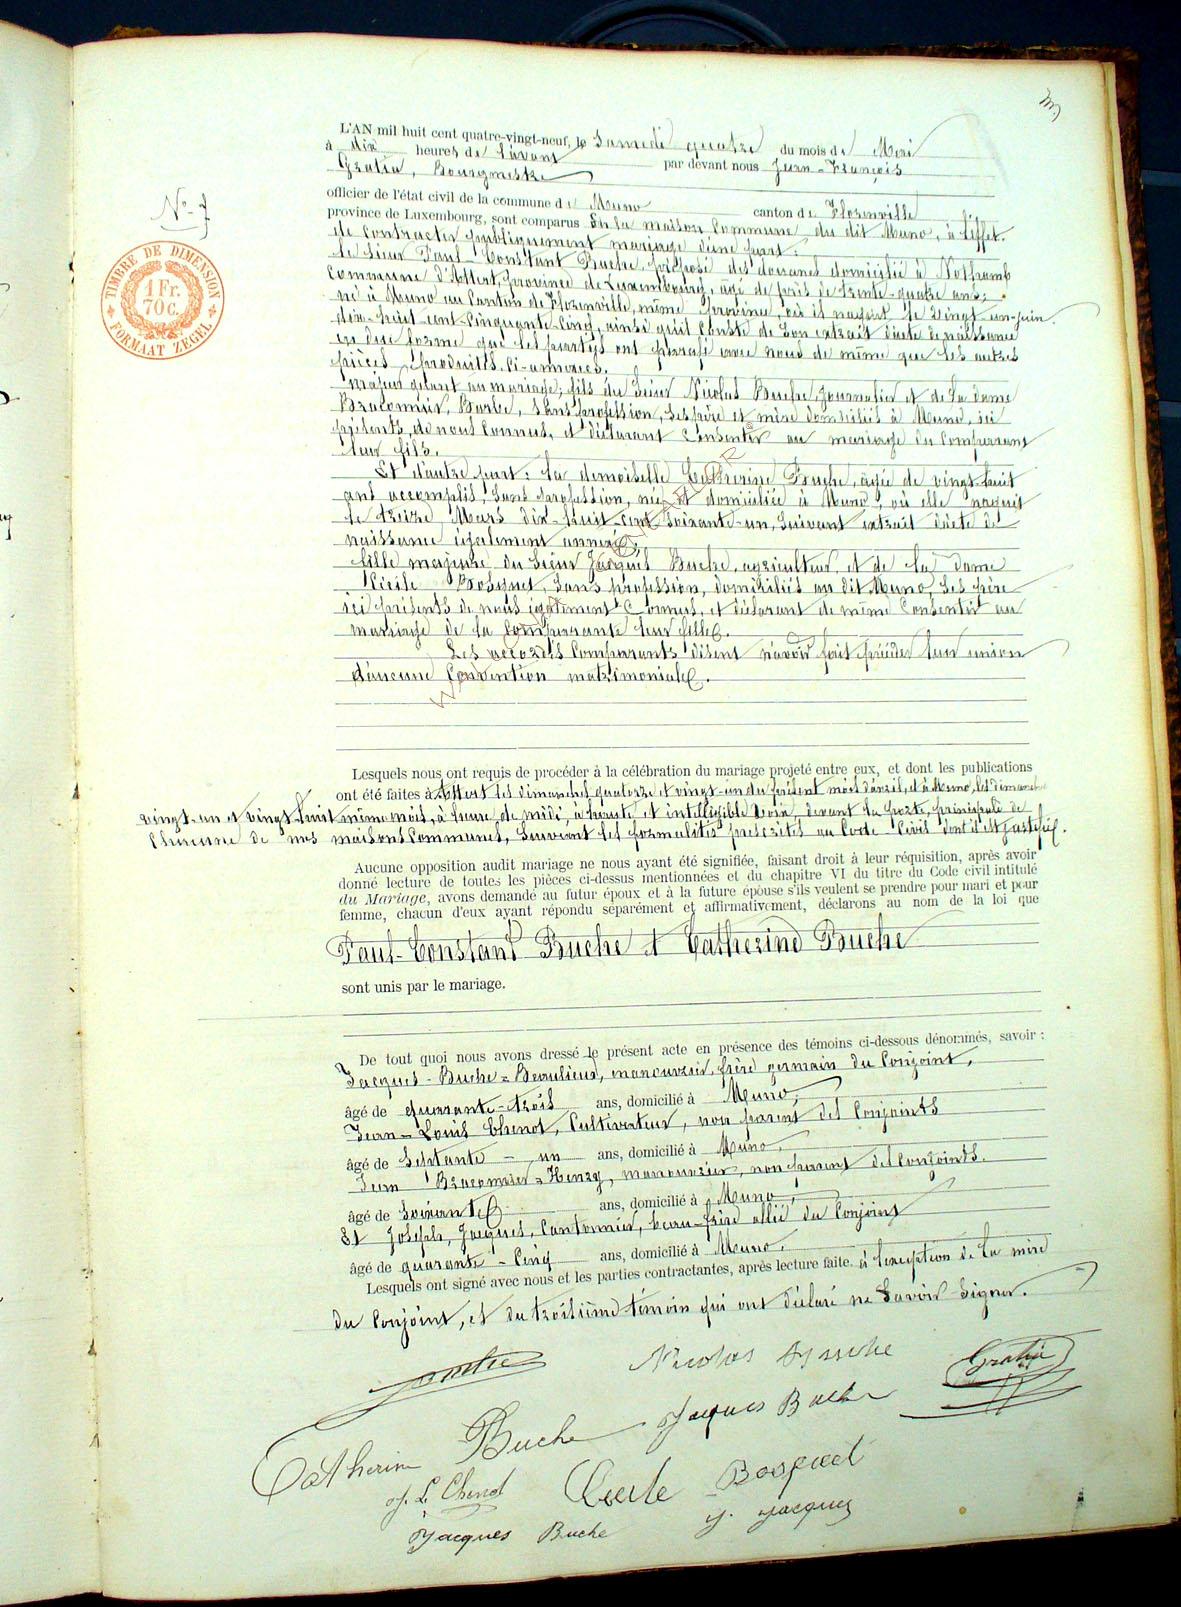 L'AN mil huit cent quatre-vingt-neuf, le Samedi quatre du mois de Mai
à dix heures de l'avant par devant nous Jean-François
Gratia, Bourgmestre
officier de l'état civil de la commune de Muno canton de Florenville
province de Luxembourg, sont comparus En la maison Commune du dit Muno, à l'effet
de Contracter publiquement mariage d'une part :
N° 7
TIMBRE DE DIMENSION
1 Fr.
70 c.
FORMAAT ZEGEL
le Sieur Paul Constant Buche, préposé des douanes domicilié à Nothomb
Commune d'Attert, Province de Luxembourg, âgé de près de trente-quatre ans,
né à Muno au Canton de Florenville, même province, où il naquit le vingt-un-juin
dix-huit-cent-Cinquante-Cinq, ainsi qu'il Conste de Son extrait d'acte de naissance
en due forme que les parties ont paraphé avec nous de même que les autres
pièces produites Ci-annexées.
Majeur quant au mariage; fils du Sieur Nicolas Buche, Journalier et de la dame
Bracomier, Barbe, Sans profession, Ses père et mère domiciliés à Muno, ici
présents, de nous Connus, et déclarant Consentir au mariage du Comparant
leur fils.
Et d'autre part : la demoiselle Catherine Buche, âgée de vingt-huit
ans accomplis, Sans profession, née et domiciliée à Muno, où elle naquit
le treize Mars dix-huit-cent Soixante-un, Suivant extrait d'acte de
naissance également annexé;
fille majeure du Sieur Jacques Buche, agriculteur, et de la dame
Cécile Bosquet, Sans profession, domiciliés au dit Muno, Ses père
ici présents de nous également Connus, et déclarant de même Consentir au
mariage de la Comparante leur fille.
Les accordés Comparants disent n'avoir fait précéder leur union
d'aucune Convention matrimoniale.
Lesquels nous ont requis de procéder à la célébration du mariage projeté entre eux, et dont les publications
ont été faites à Attert les dimanches quatorze et vingt-un du présent mois d'avril, et à Muno, les dimanches
vingt-un et vingt-huit même mois, à heure de midi, à haute et intelligible voix, devant la porte principale de
Chacune de nos maisons Communes, Suivant les formalités prescrites au Code Civil dont il est Justifié.
Aucune opposition audit mariage ne nous ayant été signifiée, faisant droit à leur réquisition, après avoir
donné lecture de toutes les pièces ci-dessus mentionnées et du chapitre VI du titre du Code civil intitulé
du Mariage, avons demandé au futur époux et à la future épouse s'ils veulent se prendre pour mari et pour
femme, chacun d'eux ayant répondu séparément et affirmativement, déclarons au nom de la loi que
Paul-Constant Buche et Catherine Buche
sont unis par le mariage.
De tout quoi nous avons dressé le présent acte en présence des témoins ci-dessous dénommés, savoir :
Jacques-Buche=Beaulieux, manouvrier, frère germain du Conjoint,
âgé de quarante-trois ans, domicilié à Muno;
Jean-Louis Chenot, Cultivateur, non parent des Conjoints
âgé de Septante-un ans, domicilié à Muno,
Jean Bracomier=Henry, manouvrier, non parent des Conjoints.
âgé de Soixante ans, domicilié à Muno;
Et Joseph, Jacques, Cantonnier, beau-frère allié du Conjoint
âgé de quarante-Cinq ans, domicilié à Muno.
Lesquels ont signé avec nous et les parties contractantes, après lecture faite, à l'exception de la mère
du Conjoint, et du troisième témoin qui ont déclaré ne Savoir Signer.
Nicolas Buche
Gratia
Catherine Buche Jacques Buche
J. L. Chenot Cecile Bosquet
Jacques Buche J. Jacques